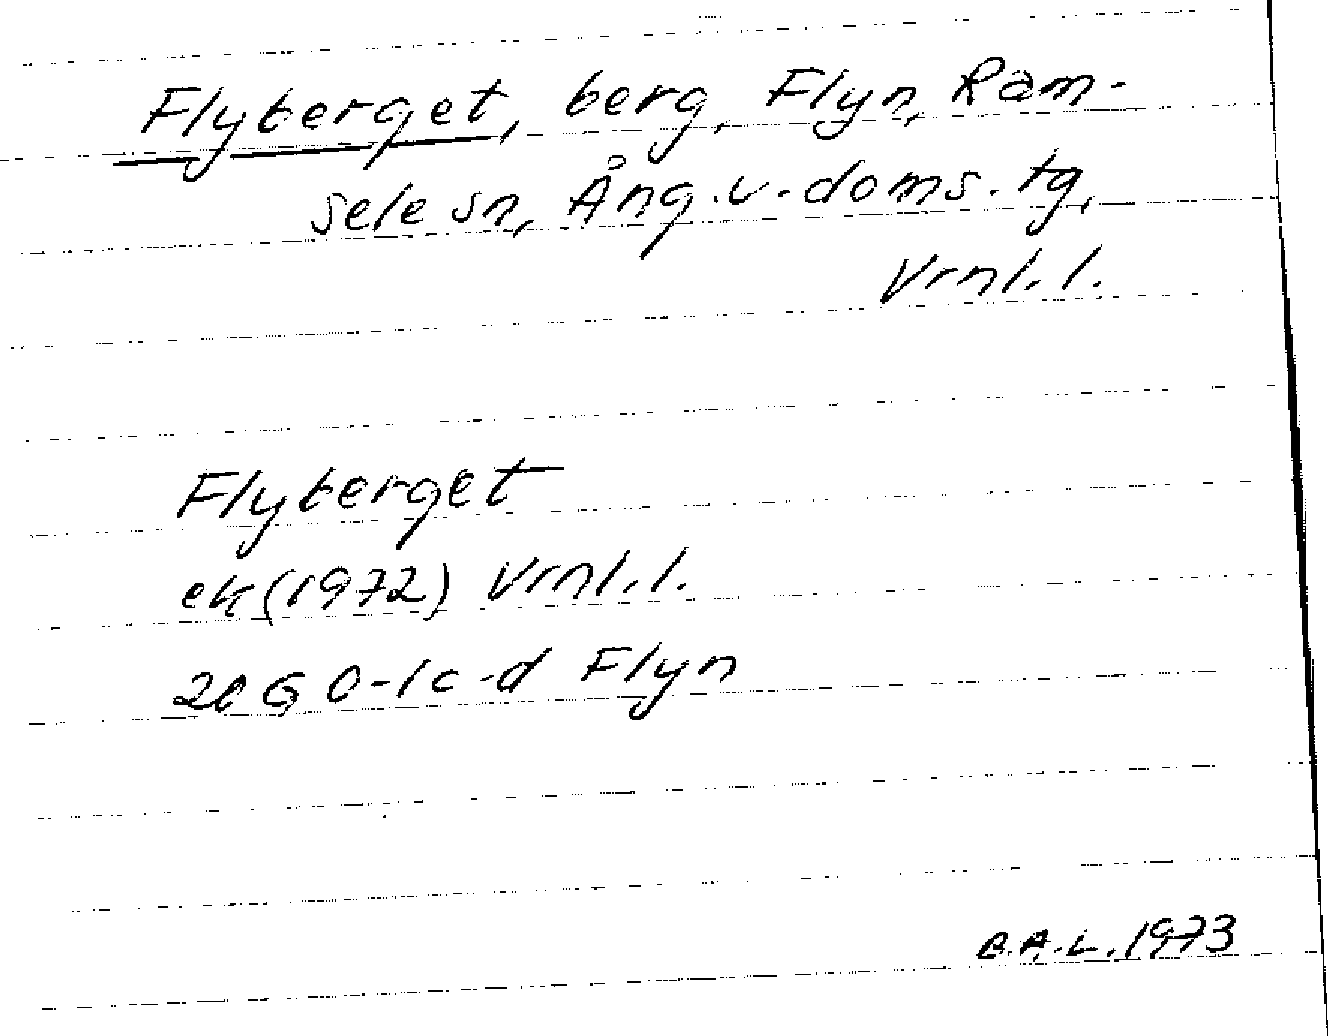 Flyberget, berg, Flyn, Ram-
sele sn, Ång.v.doms.tg,
Vrnl.l.
Flyberget
ek(1972) Vrnl.l.
20G 0-1c-d Flyn
B.A.L. 1973